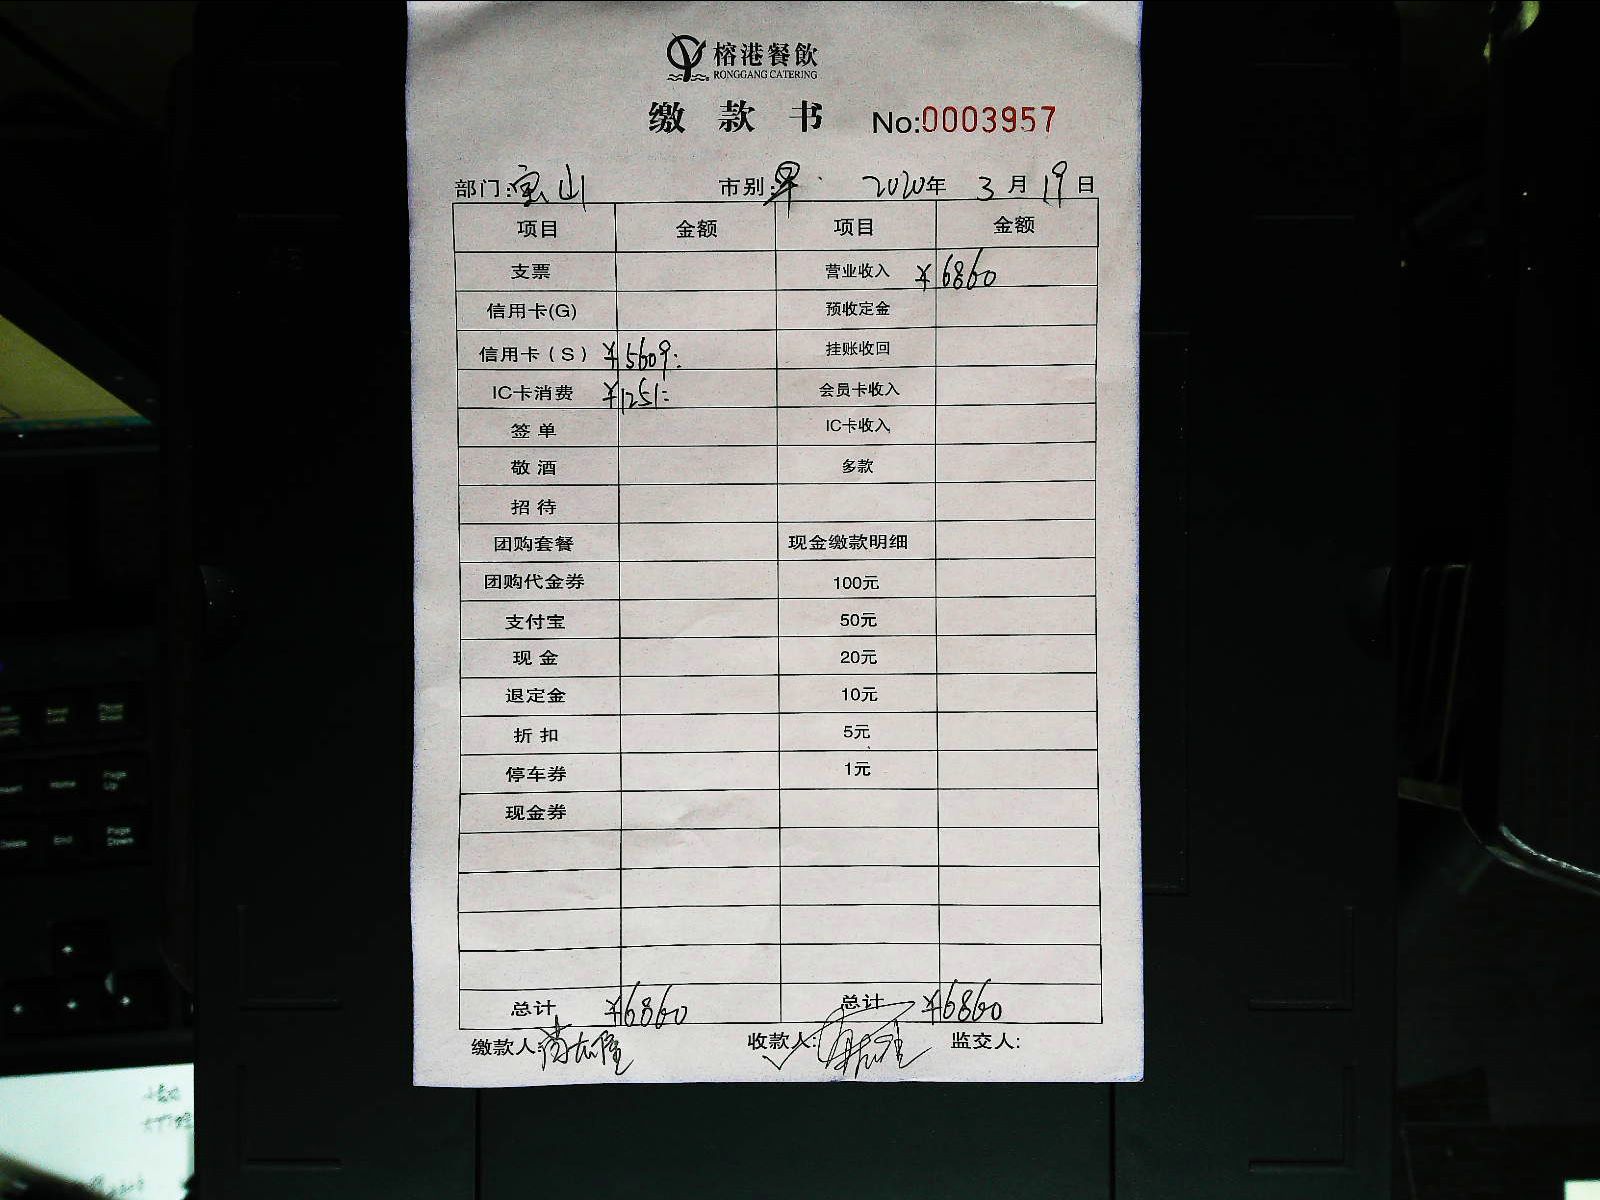 榕港餐飲
RONGGANG CATERING
缴款书 No:0003957
部门:宝山 市别:早 2020年3月19日
项目 金额 项目 金额
支票 营业收入 ¥6860
信用卡(G) 预收定金
信用卡(S) ¥5609: 挂账收回
IC卡消费 ¥1251: 会员卡收入
签单 IC卡收入
敬酒 多款
招待
团购套餐 现金缴款明细
团购代金券 100元
支付宝 50元
现金 20元
退定金 10元
折扣 5元
停车券 1元
现金券
总计 ¥6860 总计 ¥6860
缴款人: 收款人: 监交人:
Page Up
Home
End
Page Down